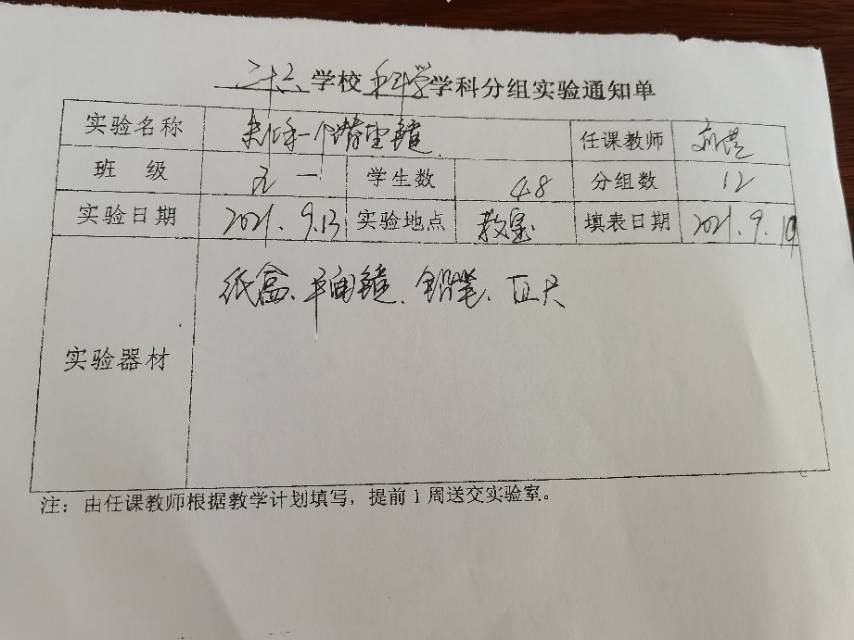 二十六学校科学学科分组实验通知单
实验名称 制作一个潜望镜 任课教师
班 级 五一 学生数 48 分组数 12
实验日期 2021.9.13 实验地点 教室 填表日期 2021.9.
实验器材 纸盒、平面镜、铅笔、直尺
注：由任课教师根据教学计划填写，提前1周送交实验室。